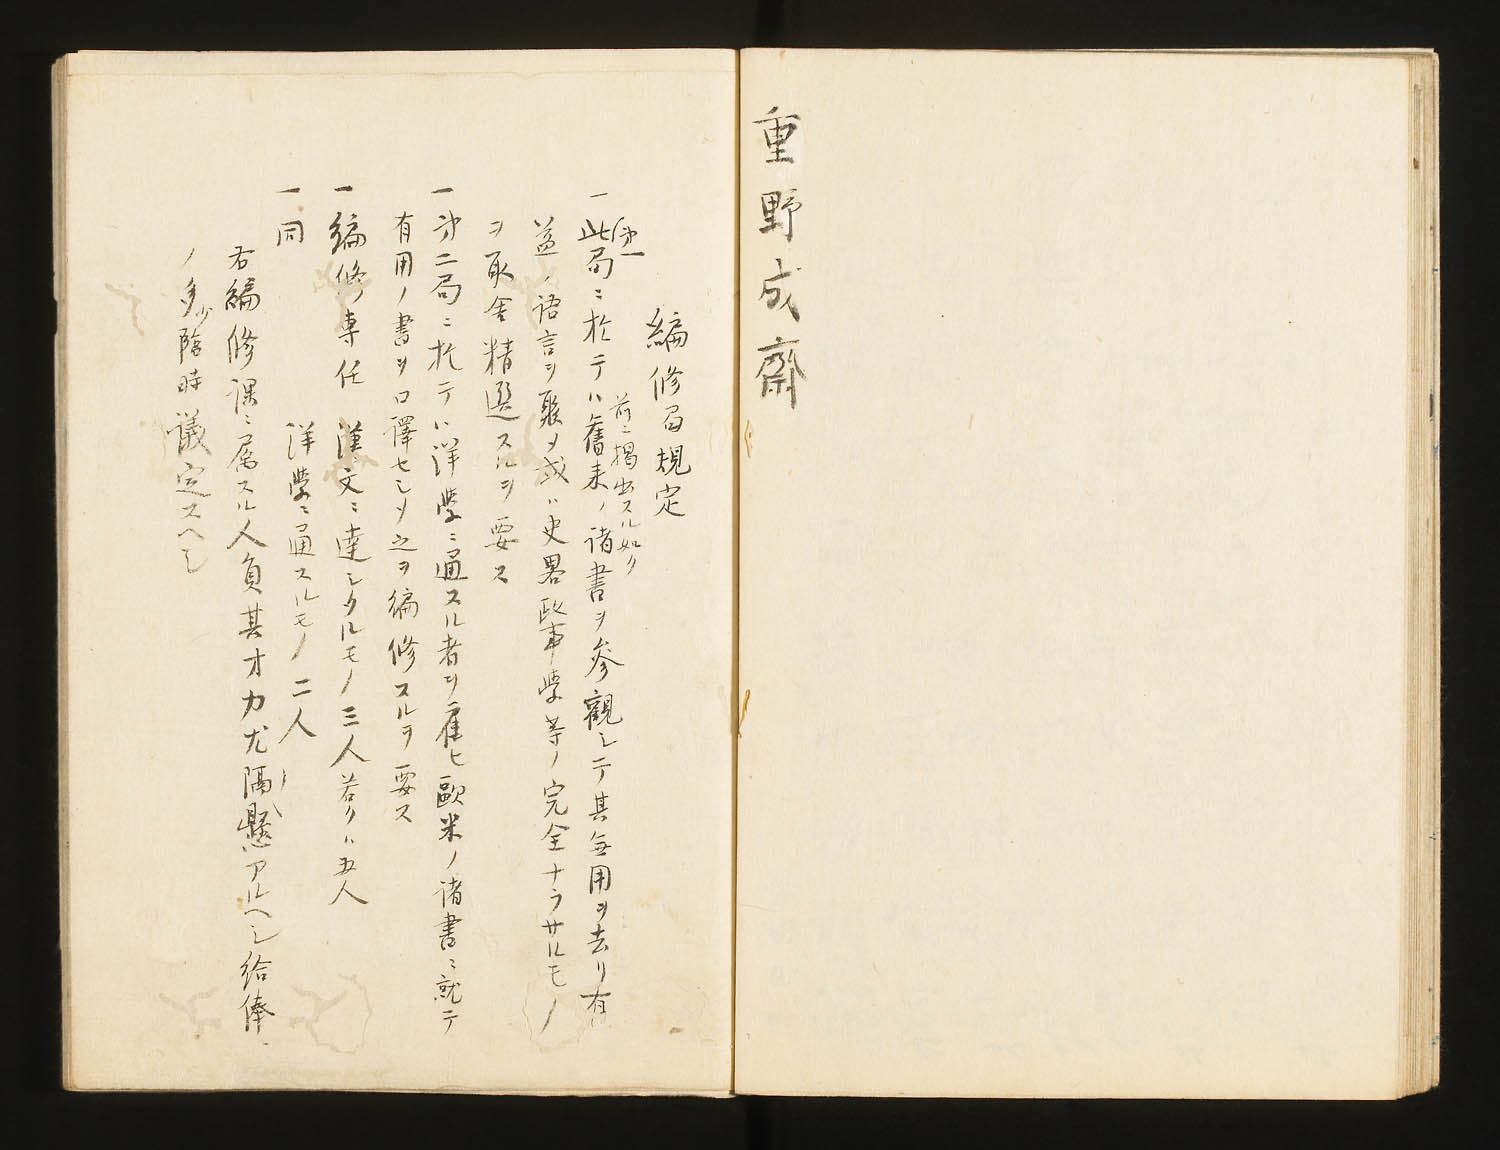 重野成齋
編修局規定
一此局ニ於テハ舊来ノ諸書ヲ参觀シテ其無用ヲ去リ有
第一
前ニ掲出スル如ク
益ノ語言ヲ聚メ或ハ史畧政事学等ノ完全ナラサルモノ
ヲ取舍精選スルヲ要ス
一第二局ニ於テハ洋學ニ通スル者ヲ雇ヒ歐米ノ諸書ニ就テ
有用ノ書ヲ口譯セシメ之ヲ編修スルヲ要ス
一編修専任 漢文ニ達シタルモノ三人若クハ五人
一同 洋學ニ通スルモノ二人
右編修課ニ属スル人員其才力尤隔懸アルヘシ給俸
ノ多少臨時議定スヘシ